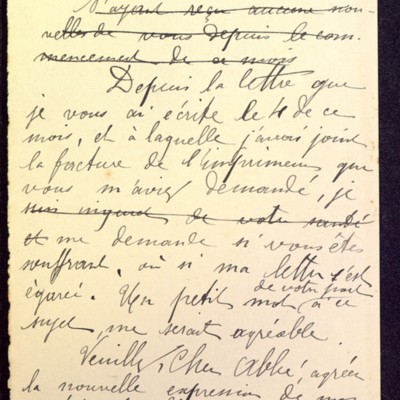 N'ayant reçu aucune nou-
velles de vous depuis le com-
mencement de ce mois
Depuis la lettre que
je vous ai écrite le 4 de ce
mois, et à laquelle j'avais joint
la facture de l'imprimeur que
vous m'avez demandé, je
suis inquiet de votre santé
et me demande si vous êtes
souffrant, où si ma lettre s'est
égarée. Un petit mot de votre part à ce
sujet me serait agréable.
Veuillez, Cher Abbé, agréer
la nouvelle expression de mes